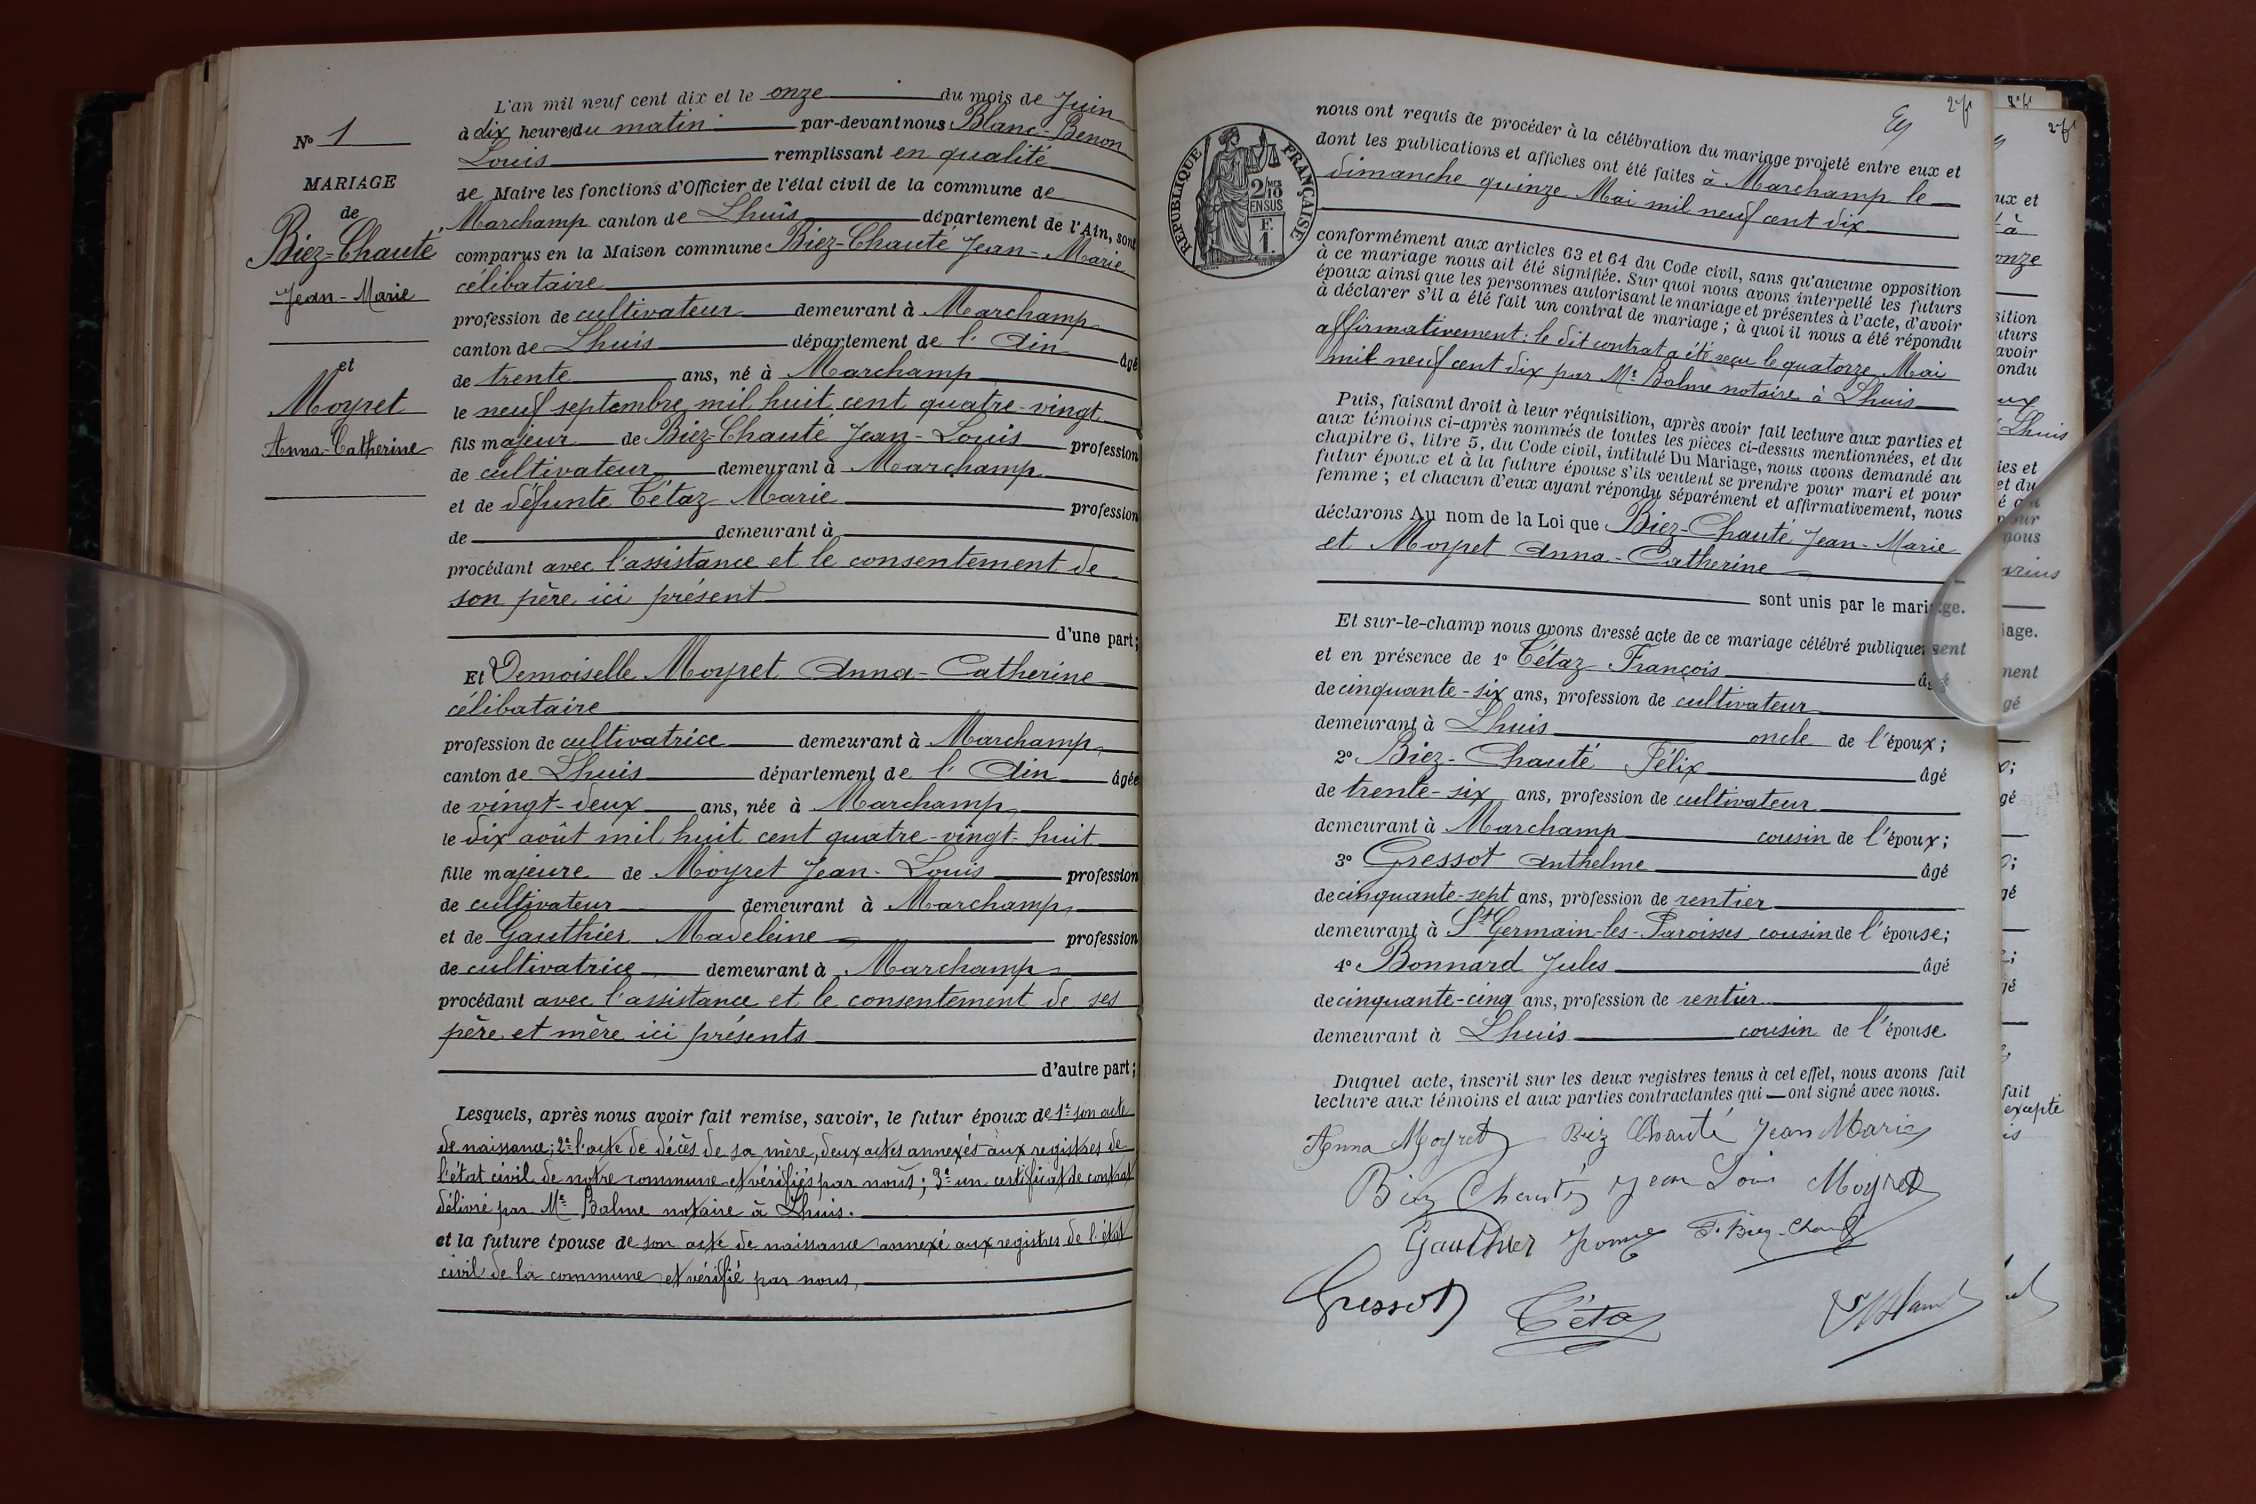 N° 1
MARIAGE
de
Biez-Chauté
Jean-Marie
et
Moyret
Anna-Catherine
L'an mil neuf cent dix et le onze du mois de Juin
à dix heures du matin par-devant nous Blanc-Benon
Louis remplissant en qualité
de Maire les fonctions d'Officier de l'état civil de la commune de
Marchamp canton de Lhuis département de l'Ain, sont
comparus en la Maison commune Biez-Chauté Jean-Marie
célibataire
profession de cultivateur demeurant à Marchamp
canton de Lhuis département de l'Ain âgé
de trente ans, né à Marchamp
le neuf septembre mil huit cent quatre-vingt
fils majeur de Biez-Chauté Jean-Louis profession
de cultivateur demeurant à Marchamp
et de défunte Tétaz Marie profession
de demeurant à
procédant avec l'assistance et le consentement de
son père ici présent
d'une part;
Et Demoiselle Moyret Anna-Catherine
célibataire
profession de cultivatrice demeurant à Marchamp
canton de Lhuis département de l'Ain âgée
de vingt-deux ans, née à Marchamp
le dix août mil huit cent quatre-vingt-huit
fille majeure de Moyret Jean-Louis profession
de cultivateur demeurant à Marchamp
et de Gauthier Madeleine profession
de cultivatrice demeurant à Marchamp
procédant avec l'assistance et le consentement de ses
père et mère ici présents
d'autre part;
Lesquels, après nous avoir fait remise, savoir, le futur époux de 1° son acte
de naissance; 2° l'acte de décès de sa mère, deux actes annexés aux registres de
l'état civil de notre commune et vérifiés par nous; 3° un certificat de contrat
délivré par Me Balme notaire à Lhuis.
et la future épouse de son acte de naissance annexé aux registres de l'état
civil de la commune et vérifié par nous,
2 f
RÉPUBLIQUE FRANÇAISE
2 MES 10
EN SUS
F.
1.
nous ont requis de procéder à la célébration du mariage projeté entre eux et
dont les publications et affiches ont été faites à Marchamp le
dimanche quinze Mai mil neuf cent dix
conformément aux articles 63 et 64 du Code civil, sans qu'aucune opposition
à ce mariage nous ait été signifiée. Sur quoi nous avons interpellé les futurs
époux ainsi que les personnes autorisant le mariage et présentes à l'acte, d'avoir
à déclarer s'il a été fait un contrat de mariage; à quoi il nous a été répondu
affirmativement: le dit contrat a été reçu le quatorze Mai
mil neuf cent dix par Me Balme notaire à Lhuis
Puis, faisant droit à leur réquisition, après avoir fait lecture aux parties et
aux témoins ci-après nommés de toutes les pièces ci-dessus mentionnées, et du
chapitre 6, titre 5, du Code civil, intitulé Du Mariage, nous avons demandé au
futur époux et à la future épouse s'ils veulent se prendre pour mari et pour
femme; et chacun d'eux ayant répondu séparément et affirmativement, nous
déclarons Au nom de la Loi que Biez-Chauté Jean-Marie
et Moyret Anna-Catherine
sont unis par le mariage.
Et sur-le-champ nous avons dressé acte de ce mariage célébré publiquement
et en présence de 1° Tétaz François âgé
de cinquante-six ans, profession de cultivateur
demeurant à Lhuis oncle de l'époux;
2° Biez-Chauté Félix âgé
de trente-six ans, profession de cultivateur
demeurant à Marchamp cousin de l'époux;
3° Gressot Anthelme âgé
de cinquante-sept ans, profession de rentier
demeurant à St Germain-les-Paroisses cousin de l'épouse;
4° Bonnard Jules âgé
de cinquante-cinq ans, profession de rentier
demeurant à Lhuis cousin de l'épouse
Duquel acte, inscrit sur les deux registres tenus à cet effet, nous avons fait
lecture aux témoins et aux parties contractantes qui ont signé avec nous.
Anna Moyret Biez Chauté Jean Marie
Biez Chauté Jean Louis Moyret
Gauthier F. Biez-Chauté
Gressot Tétaz